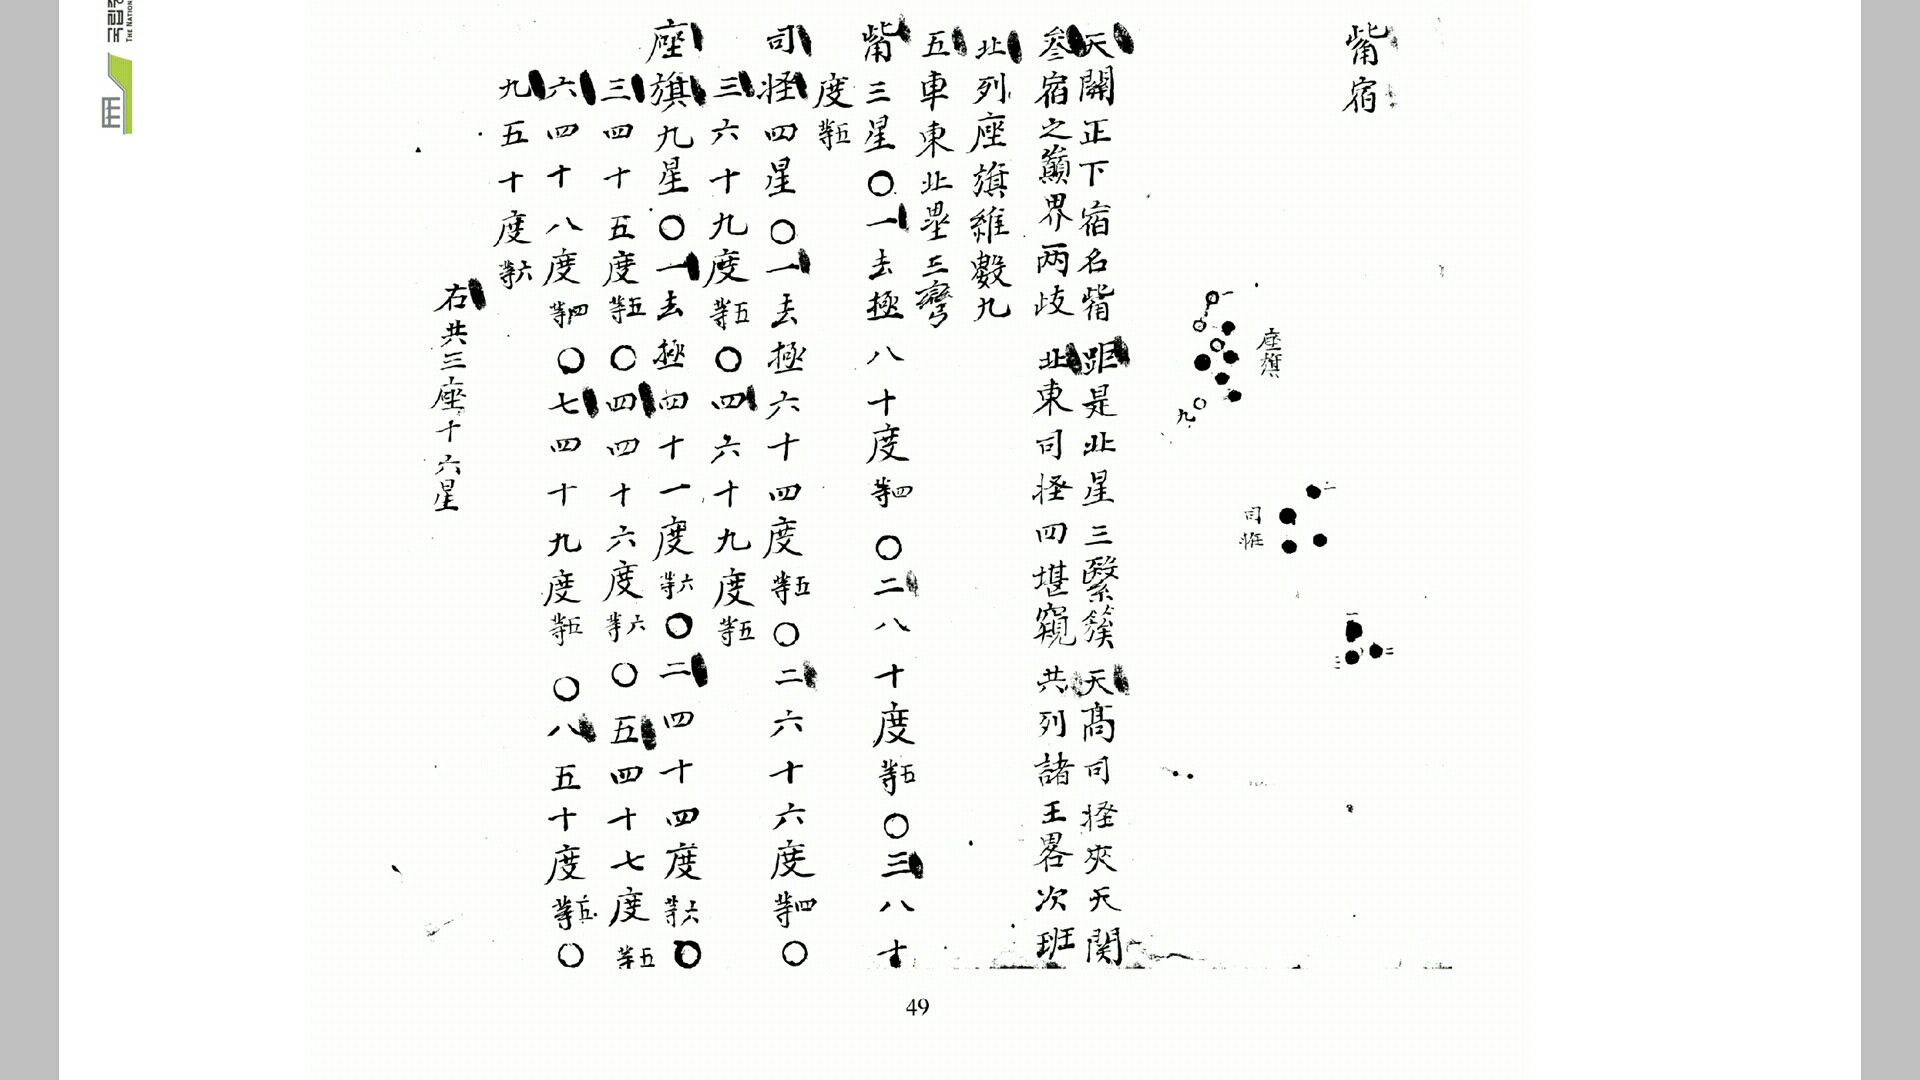 觜宿
座旗
一
九
司怪
一
一
二
三
天關正下宿名觜 距是北星三緊簇 天高司怪夾天關
參宿之巔界两歧 北東司怪四堪窺 共列諸王畧次班
北列座旗維數九
五車東北壘三彎
觜三星〇一去極八十度四等〇二八十度五等〇三八十
度五等
司怪四星〇一去極六十四度五等〇二六十六度四等〇
三六十九度五等〇四六十九度五等
座旗九星〇一去極四十一度六等〇二四十四度六等〇
三四十五度五等〇四四十六度六等〇五四十七度五等
六四十八度四等〇七四十九度五等〇八五十度五等〇
九五十度六等
右共三座十六星
49